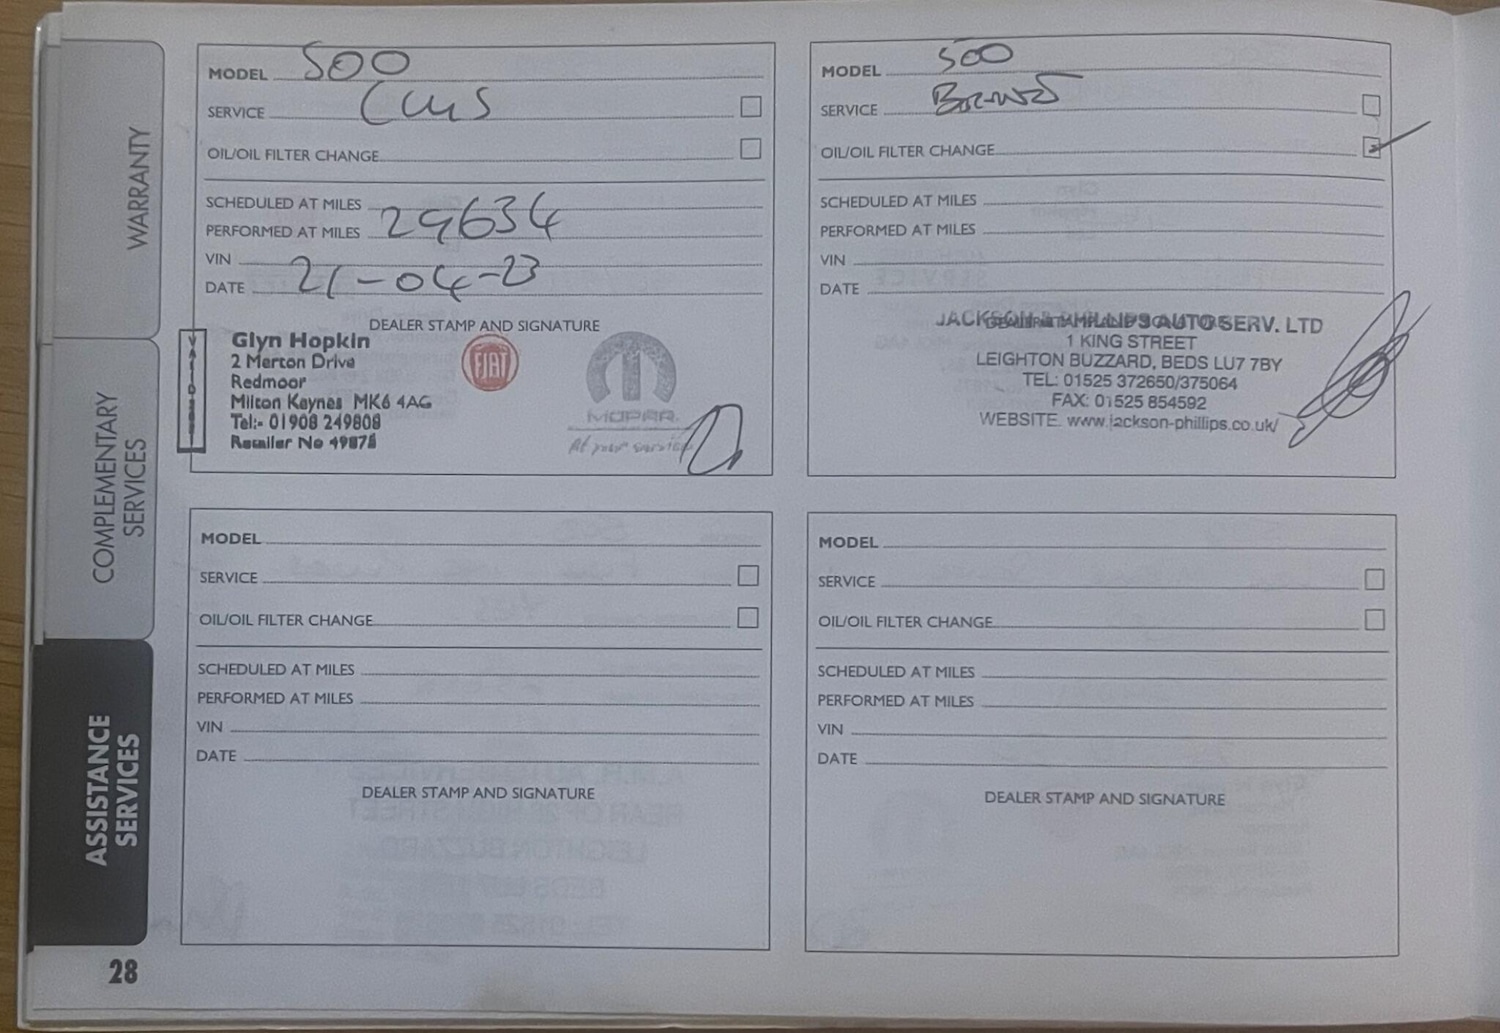 WARRANTY
COMPLEMENTARY
SERVICES
ASSISTANCE
SERVICES
MODEL 500
SERVICE
OIL/OIL FILTER CHANGE
SCHEDULED AT MILES
PERFORMED AT MILES 29634
VIN
DATE 21-04-23
DEALER STAMP AND SIGNATURE
Glyn Hopkin
2 Merton Drive
Redmoor
Milton Keynes MK6 4AG
Tel:- 01908 249808
Retailer No
FIAT
MOPAR
At your service
MODEL 500
SERVICE
OIL/OIL FILTER CHANGE
SCHEDULED AT MILES
PERFORMED AT MILES
VIN
DATE
JACKSON & PHILLIPS AUTO SERV. LTD
1 KING STREET
LEIGHTON BUZZARD, BEDS LU7 7BY
TEL: 01525 372650/375064
FAX: 01525 854592
WEBSITE. www.jackson-phillips.co.uk/
MODEL
SERVICE
OIL/OIL FILTER CHANGE
SCHEDULED AT MILES
PERFORMED AT MILES
VIN
DATE
DEALER STAMP AND SIGNATURE
MODEL
SERVICE
OIL/OIL FILTER CHANGE
SCHEDULED AT MILES
PERFORMED AT MILES
VIN
DATE
DEALER STAMP AND SIGNATURE
28